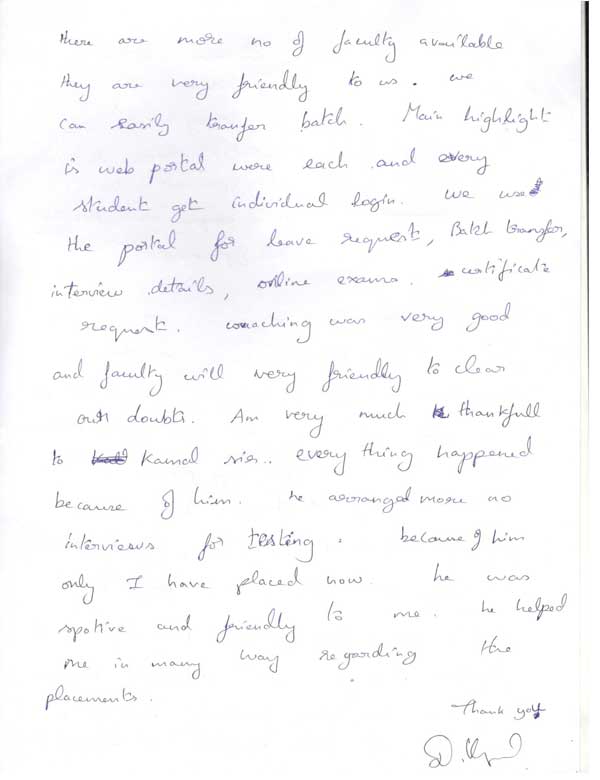 there are more no of faculty available
they are very friendly to us. we
can easily tranfer batch. Main highlight
is web portal were each and every
student get individual login. we use
the portal for leave request, Batch transfer,
interview details, online exams. certificate
request. coaching was very good
and faculty will very friendly to clear
our doubts. Am very much thankfull
to Kamal sir.. every thing happened
because of him. he arranged more no
interviews for testing. because of him
only I have placed now. he was
spotive and friendly to me. he helped
me in many way regarding the
placements.
Thank you